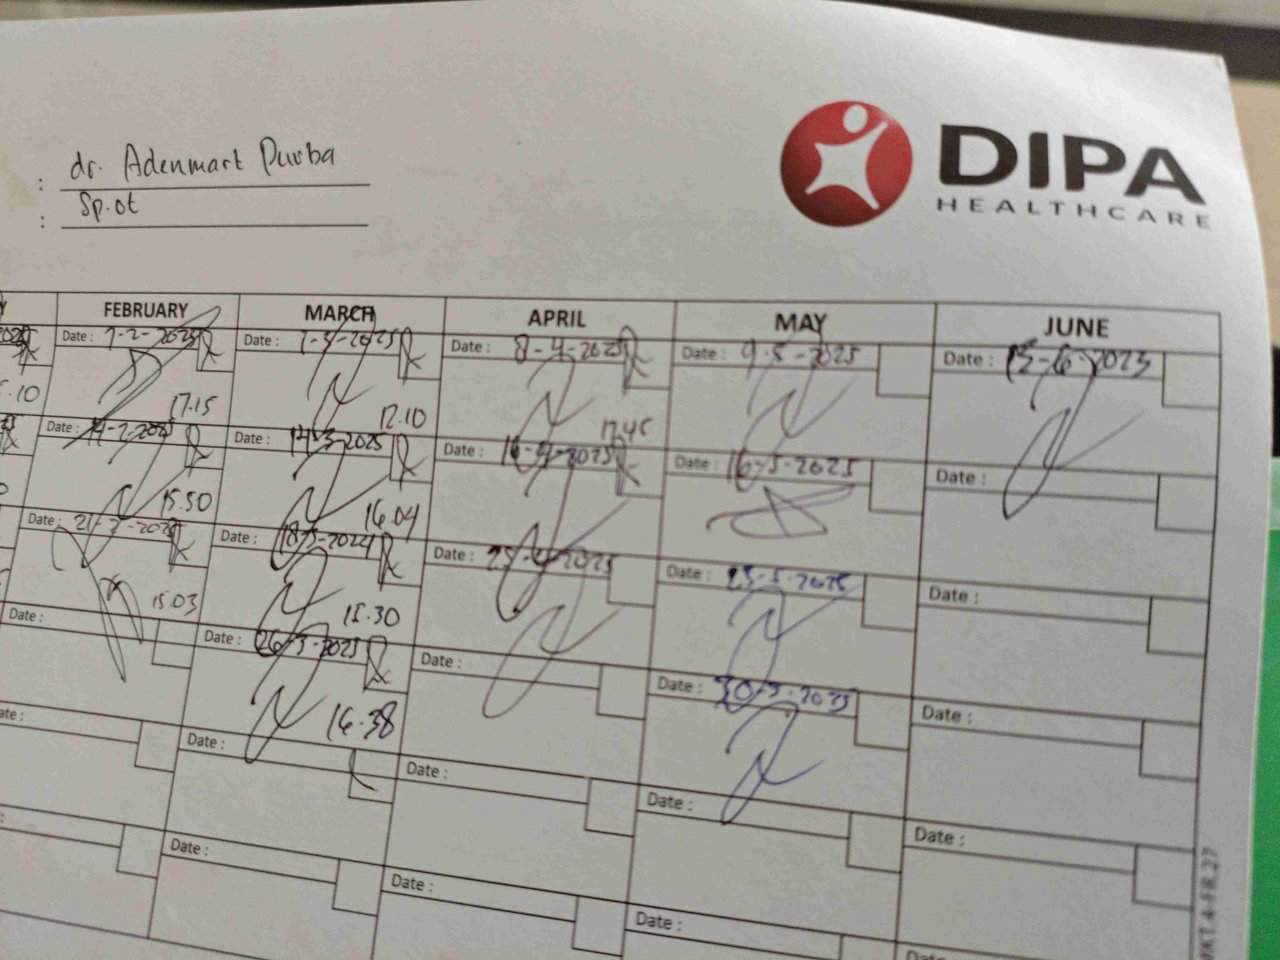 DIPA
HEALTHCARE
: dr. Adenmart Purba
: Sp.ot
FEBRUARY MARCH APRIL MAY JUNE
Date : 7-2-2025 Date : 7-3-2025 Date : 8-4-2025 Date : 9-5-2025 Date : 13-6-2023
.10 17.15 12.10 17.45
14-2-2025 Date : 14-3-2025 Date : 16-4-2025 Date : 16-5-2025 Date :
15.50 16.04
Date : 21-2-2025 Date : 18-3-2024 Date : 25-4-2025 Date : 23-5-2025 Date :
15.03 15.30
Date : Date : 26-3-2025 Date : Date : 30-5-2025 Date :
16.38
Date : Date : Date : Date :
Date : Date : Date :